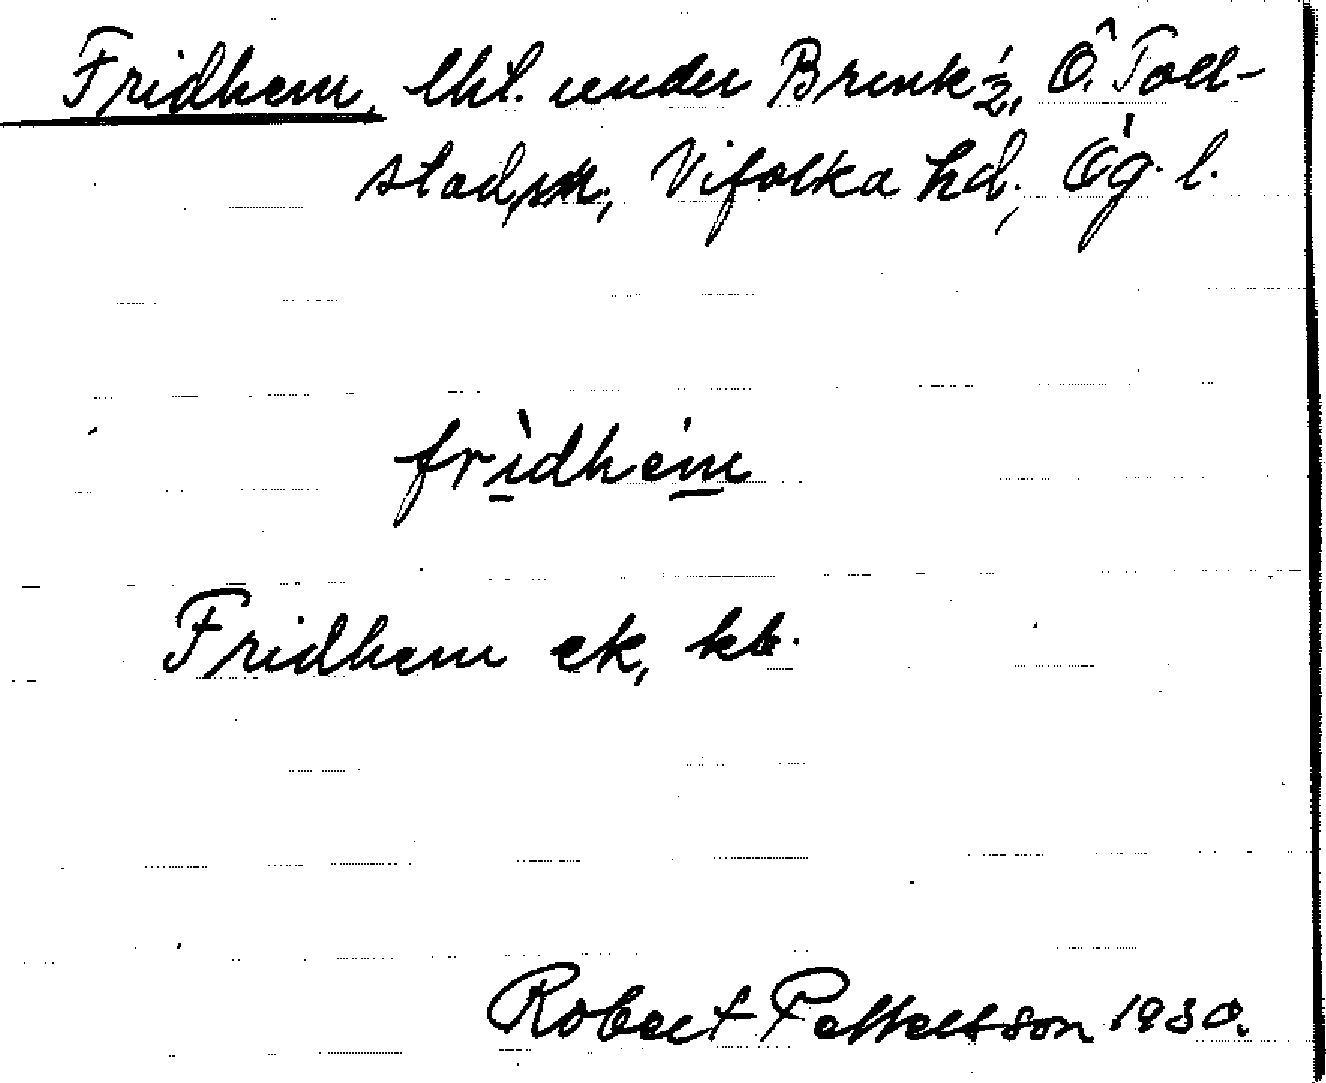 Fridhem, lht. under Brink ½, Ö. Toll-
stad sn, Vifolka hd, Ög. l.
fridhem
Fridhem ek, kb.
Robert Pettersson 1930.